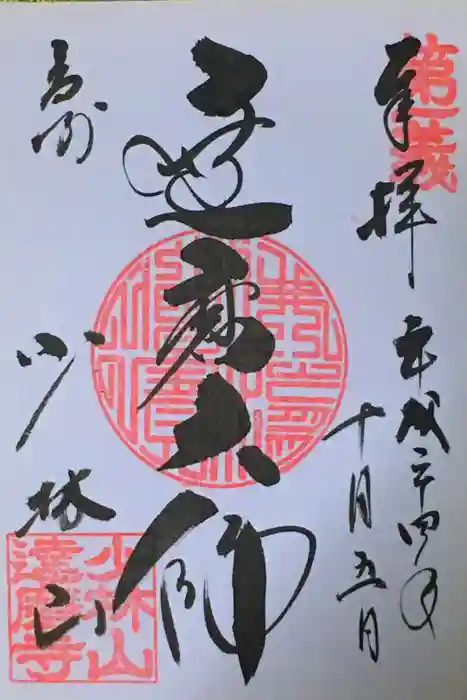 第一義
奉拝
平成二十四年
十月五月
達磨大師
上州
少林山
少林山
達磨寺